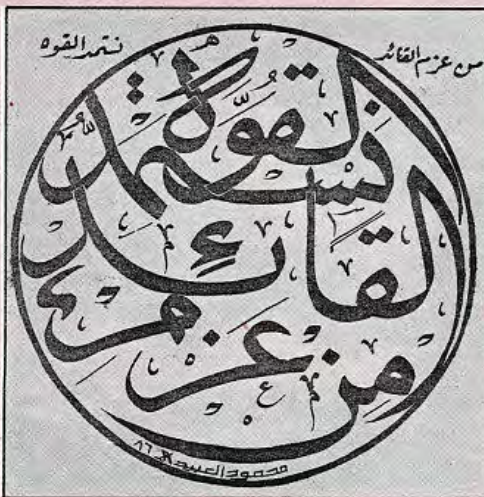 من عزم القائد
نستمد القوه
من عزم
القائد
نستمد
القوة
محمود العبيدي ٨٦